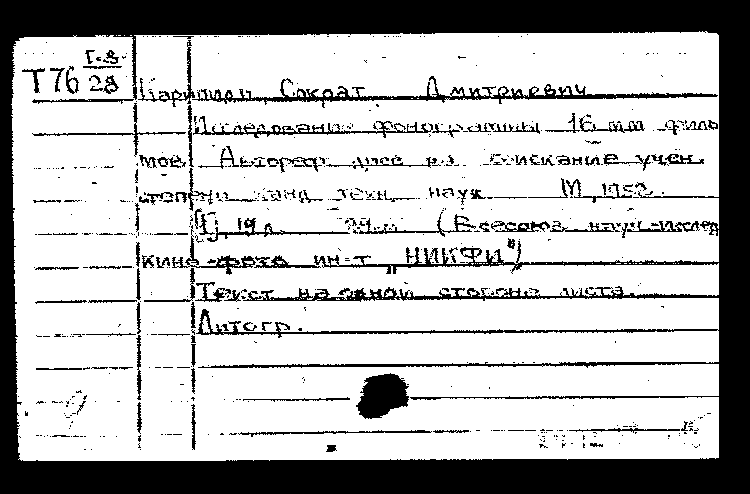 Т-8
Т76 28
Карипиди, Сократ Дмитриевич
Исследование фонограммы 16 мм филь
мов. Автореф. дисс. на соискание учен.
степени канд. техн. наук. М., 1952.
[1], 19 л. 29 см (Всесоюз. научн.-исслед
кино-фото ин-т „НИКФИ")
Текст на одной стороне листа.
Литогр.